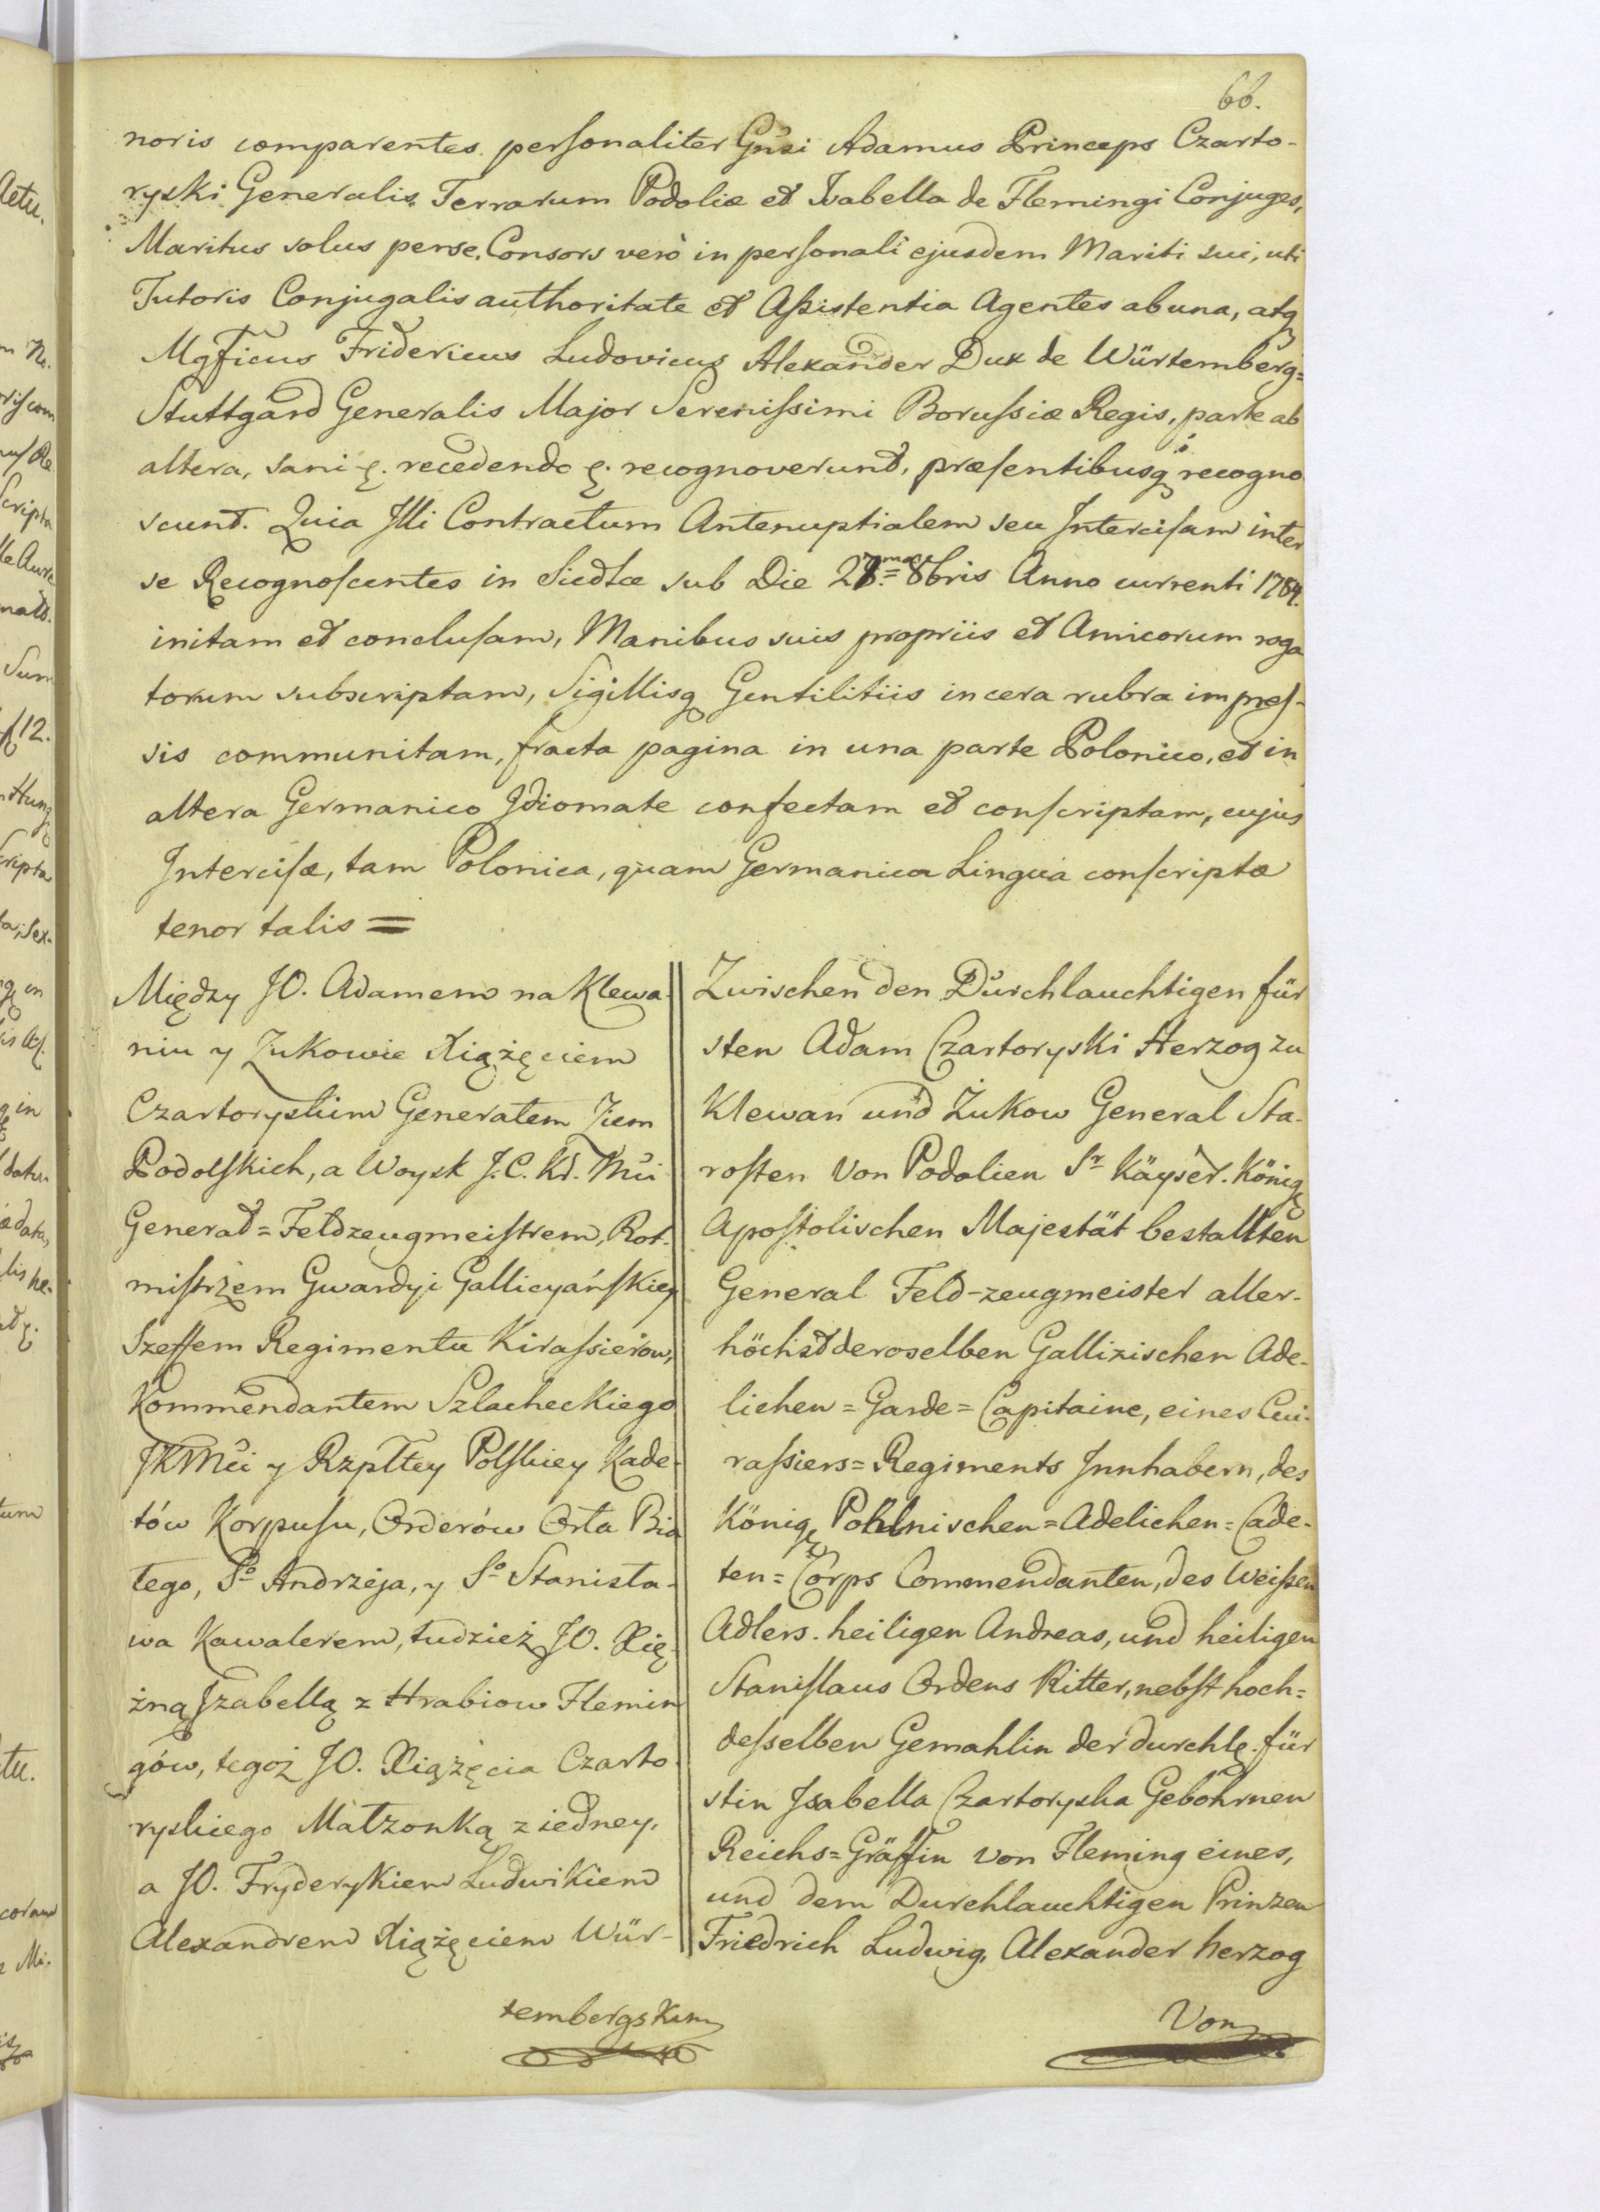 66.
noris comparentes personaliter Gnsi Adamus Princeps Czarto-
ryski Generalis Terrarum Podoliæ et Isabella de Flemingi Conjuges,
Maritus solus per se, Consors verò in personali ejusdem Mariti sui, uti
Tutoris Conjugalis authoritate et Aßistentia Agentes ab una, atq
Mgficus Fridericus Ludovicus Alexander Dux de Würtemberg=
Stuttgard Generalis Major Serenissimi Borussiæ Regis, parte ab
altera, sani ę. recedendo ę. recognoverunt, præsentibusq recogno
scunt. Quia Illi Contractum Antenuptialem seu Intercisam inter
se Recognoscentes in Siedlce sub Die 27.ma 8bris Anno currenti 1784.
initam et conclusam, Manibus suis propriis et Amicorum roga
torum subscriptam, Sigillisq Gentilitiis in cera rubra impres-
sis communitam, fracta pagina in una parte Polonico, et in
altera Germanico Idiomate confectam et conscriptam, cujus
Intercisæ, tam Polonica, quam Germanica Lingua conscriptæ
tenor talis =
Między JO. Adamem na Klewa-
niu y Żukowie Xiążęciem
Czartoryskim Generałem Ziem
Podolskich, a Woysk J. C. Kr. Mci
Generał=Feldzeugmeistrem, Rot-
mistrzem Gwardyi Gallicyańskiey
Szeffem Regimentu Kirassierów,
Kommendantem Szlacheckiego
JKMci y Rzpltey Polskiey Kade-
tów Korpusu, Orderów Orła Bia
łego, So Andrzeja, y So Stanisła-
wa Kawalerem, tudzież JO. Xię-
żną Izabellą z Hrabiow Flemin
gów, tegoż JO. Xiążęcia Czarto
ryskiego Małzonką z iedney,
a JO. Fryderykiem Ludwikiem
Alexandrem Xiążęciem Wür-
tembergskim
Zwischen den Durchlauchtigen für
sten Adam Czartoryski Herzog zu
Klewan und Żukow General Sta-
rosten von Podolien Sr Käyser. König
Apostolischen Majestät bestallten
General Feld-zeugmeister aller-
höchst deroselben Gallizischen Ade-
lichen=Garde=Capitaine, eines Cui-
rassiers=Regiments Innhabern, des
König Pohlnischen=Adelichen=Cade-
ten=Corps Commendanten, des Weißen
Adlers. heiligen Andreas, und heiligen
Stanislaus Ordens Ritter, nebst hoch=
desselben Gemahlin der durchlę. für
stin Isabella Czartoryska Gebohrnen
Reichs=Gräffin von Fleming eines,
und dem Durchlauchtigen Prinzen
Friedrich Ludwig, Alexander herzog
Von